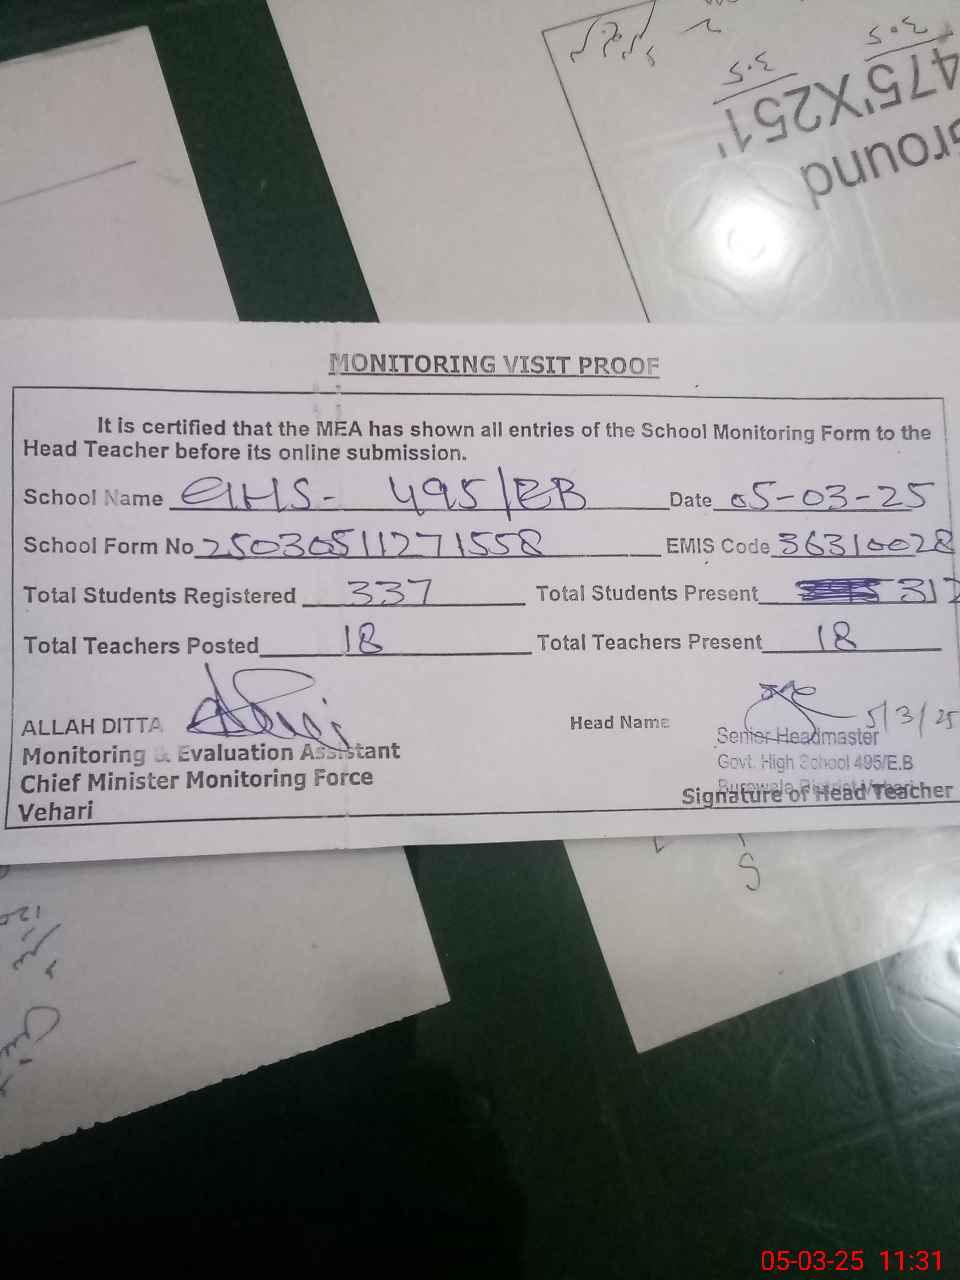 475'X251'
3.5
3.5
MONITORING VISIT PROOF
It is certified that the MEA has shown all entries of the School Monitoring Form to the
Head Teacher before its online submission.
School Name GHS- 495/EB Date 05-03-25
School Form No 25030511271558 EMIS Code 36310028
Total Students Registered 337 Total Students Present 312
Total Teachers Posted 18 Total Teachers Present 18
ALLAH DITTA Head Name 5/3/25
Monitoring & Evaluation Assistant Senior Headmaster
Chief Minister Monitoring Force Govt. High School 495/E.B
Burewala District Vehari
Vehari Signature of Head Teacher
05-03-25 11:31